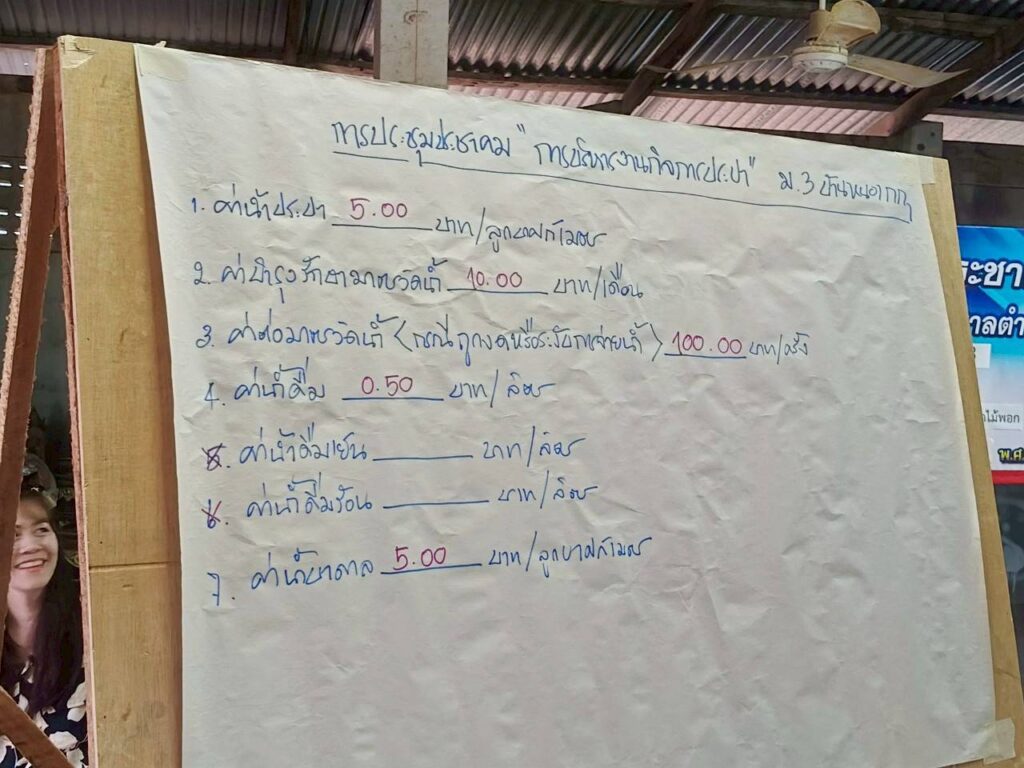 การประชุมประชาคม "การบริหารงานกิจการประปา" ม.3 บ้านหนอง
1. ค่าน้ำประปา 5.00 บาท/ลูกบาศก์เมตร
2. ค่าบำรุงรักษามาตรวัดน้ำ 10.00 บาท/เดือน
3. ค่าต่อมาตรวัดน้ำ (กรณีถูกงดหรือระงับการจ่ายน้ำ) 100.00 บาท/ครั้ง
4. ค่าน้ำดื่ม 0.50 บาท/ลิตร
5. ค่าน้ำดื่มเย็น บาท/ลิตร
6. ค่าน้ำดื่มร้อน บาท/ลิตร
7. ค่าน้ำบาดาล 5.00 บาท/ลูกบาศก์เมตร
ะชา
าลตำ
ไม้พอก
พ.ศ.